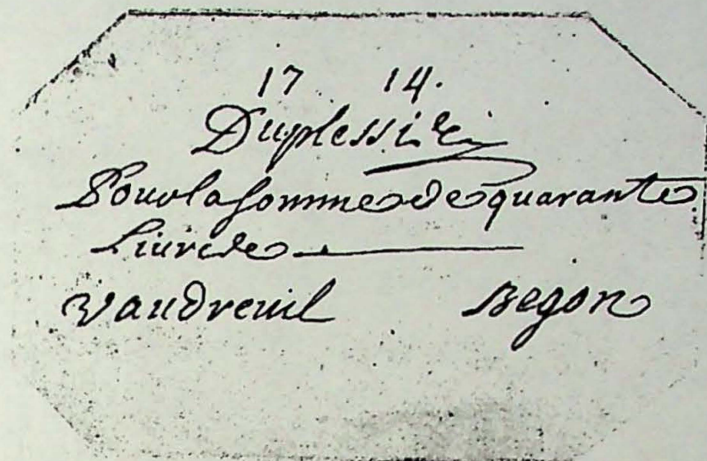 17 14.
Duplessis
Pour la somme de quarante
Livrede
Vaudreuil Begon